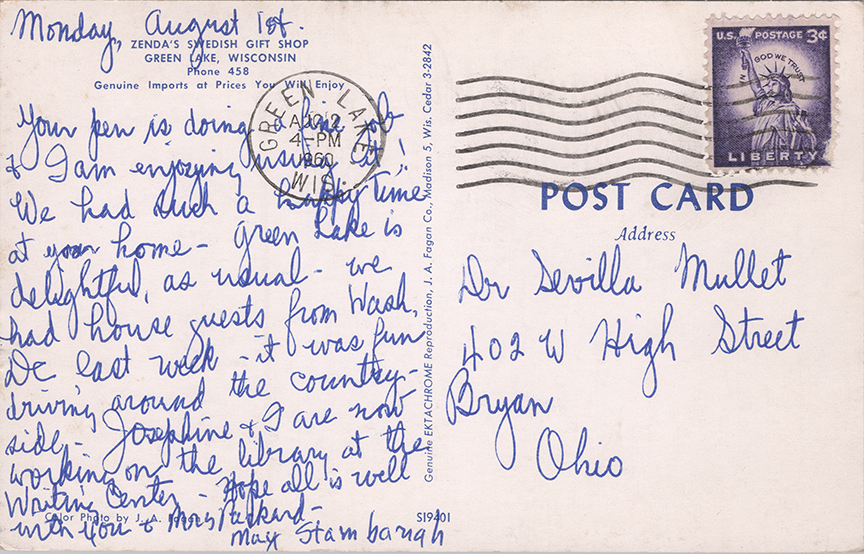 Monday, August 1st.
ZENDA'S SWEDISH GIFT SHOP
GREEN LAKE, WISCONSIN
Phone 458
Genuine Imports at Prices You Will Enjoy
Your pen is doing a fine job
& I am enjoying using it!
We had such a happy time
at your home - Green Lake is
delightful, as usual - we
had house guests from Wash,
DC last week - it was fun
driving around the country-
side - Josephine & I are now
working on the library at the
Writing Center - Hope all is well
with you & Mrs Packard -
May Stambaugh
Color Photo by J. A. Fagan
GREEN LAKE
AUG 2
4-PM
1960
WIS.
Genuine EKTACHROME Reproduction, J. A. Fagan Co., Madison 5, Wis. Cedar 3-2842
S19401
U.S. POSTAGE 3¢
IN GOD WE TRUST
LIBERTY
POST CARD
Address
Dr Sevilla Mullet
402 W High Street
Bryan
Ohio